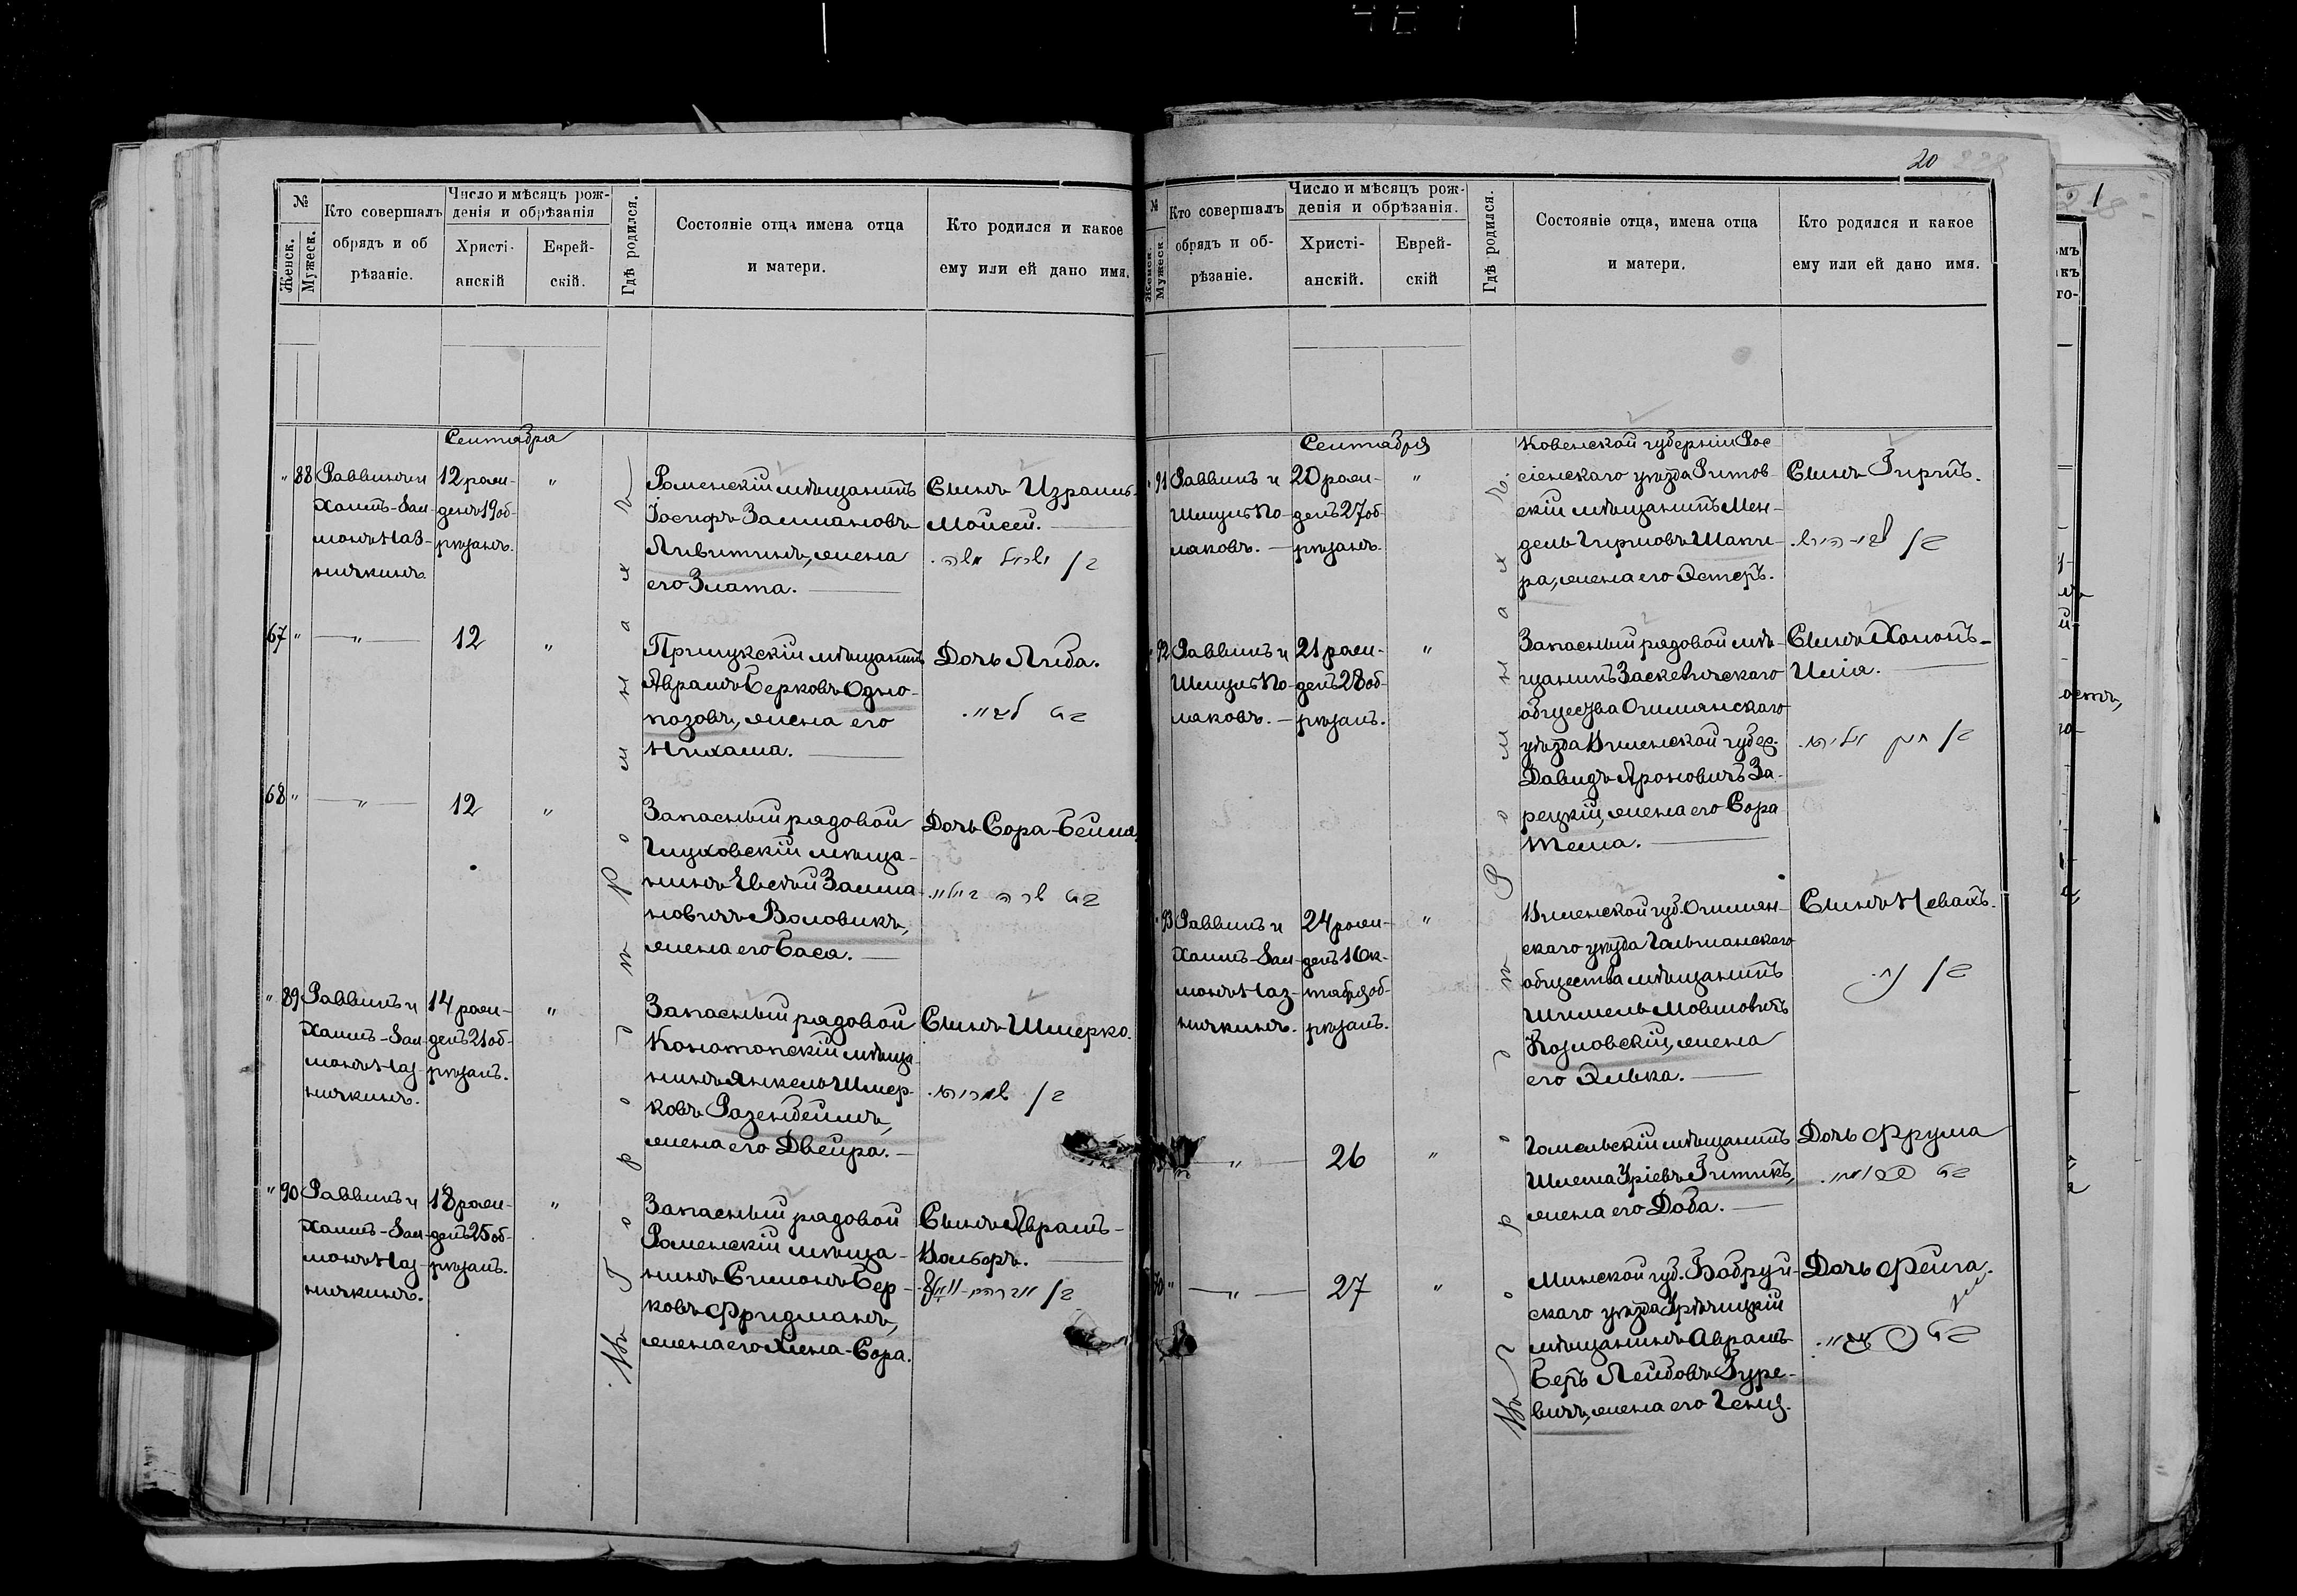 №
Женск.
Мужеск.
Кто совершалъ
обрядъ и об
рѣзаніе.
Число и мѣсяцъ рож-
денія и обрѣзанія
Христі-
анскій
Еврей-
скій.
Гдѣ родился.
Состояніе отца имена отца
и матери.
Кто родился и какое
ему или ей дано имя.
Сентября
Въ городѣ Ромнахъ
" 88
Раввинъ и
Хаимъ-Зал-
монъ Наз-
ничкинъ
12 рож-
денъ 19 об-
рѣзанъ.
"
Роменскій мѣщанинъ
Іосифъ Залмановъ
Ливитинъ, жена
его Злата.
Сынъ Израиль-
Мойсей.
67 "
"
12
"
Прилукскій мѣщанинъ
Абрамъ Берковъ Одно-
позовъ, жена его
Нихама.
Дочь Либа.
68 "
"
12
"
Запасный рядовой
Глуховскій мѣща-
нинъ Евсѣй Залма-
новичъ Воловикъ,
жена его Бася.
Дочь Сора-Бейла,
" 89
Раввинъ и
Хаимъ-Зал-
монъ Наз-
ничкинъ.
14 рож-
денъ 21 об-
рѣзанъ.
"
Запасный рядовой
Конотопскій мѣща-
нинъ Янкель Шмер-
ковъ Разенбеймъ,
жена его Двейра.
Сынъ Шмерко.
" 90
Раввинъ и
Хаимъ-Зал-
монъ Наз-
ничкинъ.
18 рож-
денъ 25 об-
рѣзанъ.
"
Запасный рядовой
Роменскій мѣща-
нинъ Симонъ Бер-
ковъ Фридманъ,
жена его Хіена-Сора.
Сынъ Абрамъ-
Вольфъ.
20
№
Женск.
Мужеск.
Кто совершалъ
обрядъ и об-
рѣзаніе.
Число и мѣсяцъ рож-
денія и обрѣзанія.
Христі-
анскій.
Еврей-
скій
Гдѣ родился.
Состояніе отца, имена отца
и матери.
Кто родился и какое
ему или ей дано имя.
Сентября
Въ городѣ Ромнахъ.
" 91
Раввинъ и
Шмуль По-
ляковъ.
20 рож-
денъ 27 об-
рѣзанъ.
"
Ковенской губерніи Рос
сіенскаго уѣзда Ритов-
скій мѣщанинъ Мен-
дель Гиршовъ Шапи-
ра, жена его Эстеръ.
Сынъ Гиршъ.
" 92
Раввинъ и
Шмуль По-
ляковъ.
21 рож-
денъ 28 об-
рѣзанъ.
"
Запасный рядовой мѣ-
щанинъ Заскевичскаго
общества Ошмянскаго
уѣзда Виленской губер.
Давидъ Ароновичъ За-
рецкій, жена его Сора
Тема.
Сынъ Хононъ-
Илія.
" 93
Раввинъ и
Хаимъ-Зал-
монъ Наз-
ничкинъ.
24 рож-
денъ 1 Ок-
тября об-
рѣзанъ.
"
Виленской губ. Ошмян-
скаго уѣзда Гольшанскаго
общества мѣщанинъ
Шимель Мовшовичъ
Козловскій, жена
его Элька.
Сынъ Невахъ.
"
26
"
Гомельскій мѣщанинъ
Шлема Уріевъ Гитикъ,
жена его Доба.
Дочь Фрума
"
27
"
Минской губ. Бобруй-
скаго уѣзда Урѣчицкій
мѣщанинъ Абрамъ-
Беръ Лейбовъ Гуре-
вичъ, жена его Геня.
Дочь Фейга.